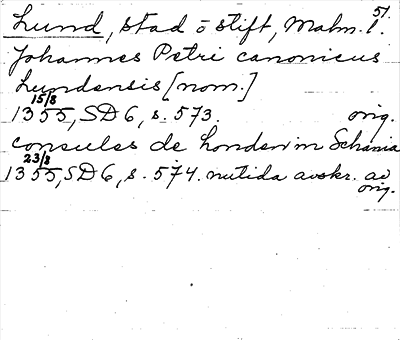 Lund, stad o stift, Malm. l. 51.
Johannes Petri canonicus
Lundensis [nom.]
15/8
1355, SD 6, s. 573. orig.
consules de Londen in Schania
23/8
1355, SD 6, s. 574. nutida avskr. av
orig.